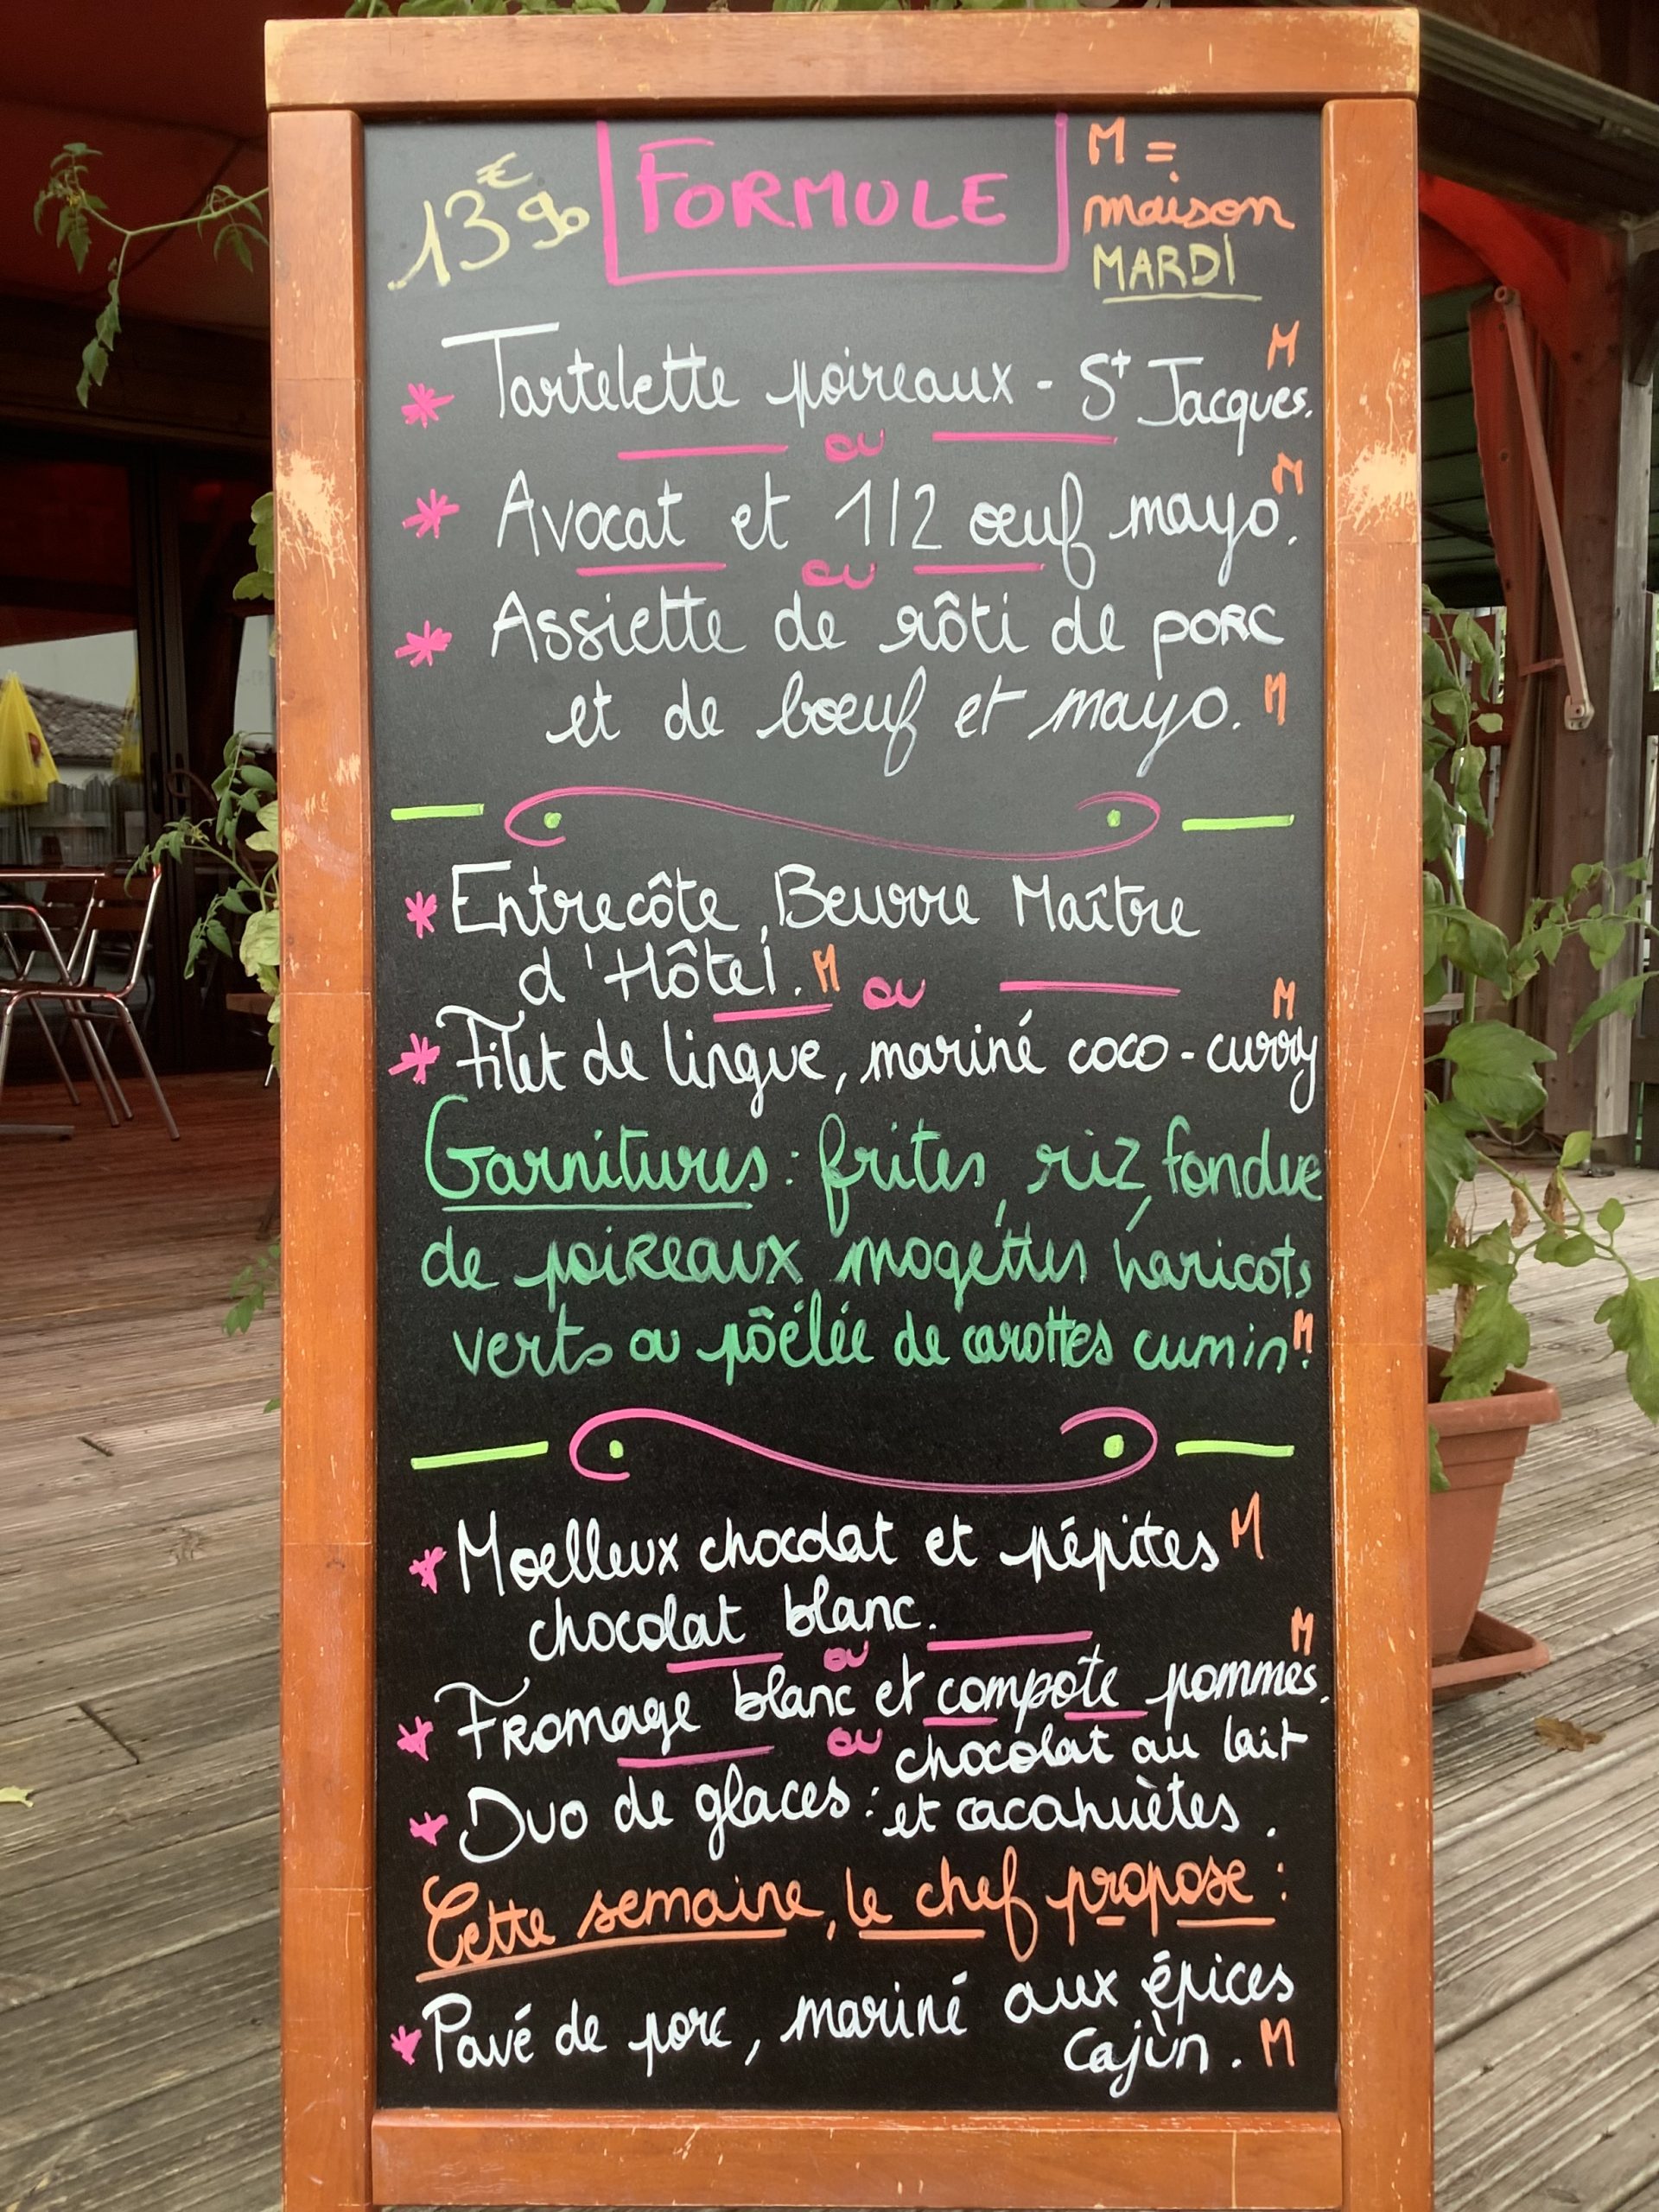 13€90 FORMULE M =
maison
MARDI
* Tartelette poireaux - St Jacques. M
ou
* Avocat et 1/2 œuf mayo. M
ou
* Assiette de rôti de porc
et de bœuf et mayo. M
* Entrecôte, Beurre Maître
d'Hôtel. M
ou
* Filet de lingue, mariné coco-curry M
Garnitures : frites, riz, fondue
de poireaux mogettes haricots
verts ou pôélée de carottes cumin. M
* Moelleux chocolat et pépites M
chocolat blanc.
ou
* Fromage blanc et compote pommes. M
ou
chocolat au lait
* Duo de glaces : et cacahuètes.
Cette semaine, le chef propose :
* Pavé de porc, mariné aux épices
Cajùn. M